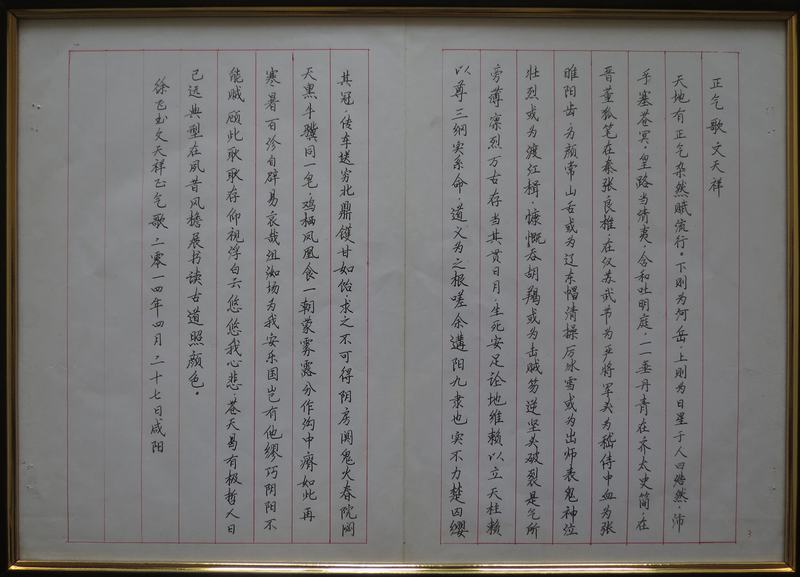 正气歌 文天祥
天地有正气杂然赋流行。下则为河岳·上则为日星于人曰浩然·沛
乎塞苍冥·皇路当清夷·含和吐明庭·一一垂丹青在齐太史简·在
晋董狐笔在秦张良椎在汉苏武节为严将军头为嵇侍中血为张
睢阳齿·为颜常山舌或为辽东帽清操厉冰雪或为出师表鬼神泣
壮烈或为渡江楫·慷慨吞胡羯或为击贼笏逆竖头破裂是气所
旁薄凛烈万古存当其贯日月·生死安足论地维赖以立天柱赖
以尊三纲实系命·道义为之根嗟余遘阳九隶也实不力楚囚缨
其冠·传车送穷北鼎镬甘如饴·求之不可得阴房阒鬼火春院闭
天黑牛骥同一皂·鸡栖凤凰食一朝蒙雾露分作沟中瘠如此再
寒暑百沴自辟易哀哉沮洳场为我安乐国岂有他缪巧阴阳不
能贼顾此耿耿存仰视浮白云悠悠我心悲·苍天曷有极哲人日
已远典型在夙昔风檐展书读古道照颜色。
徐飞玉文天祥正气歌二零一四年四月二十七日咸阳
3